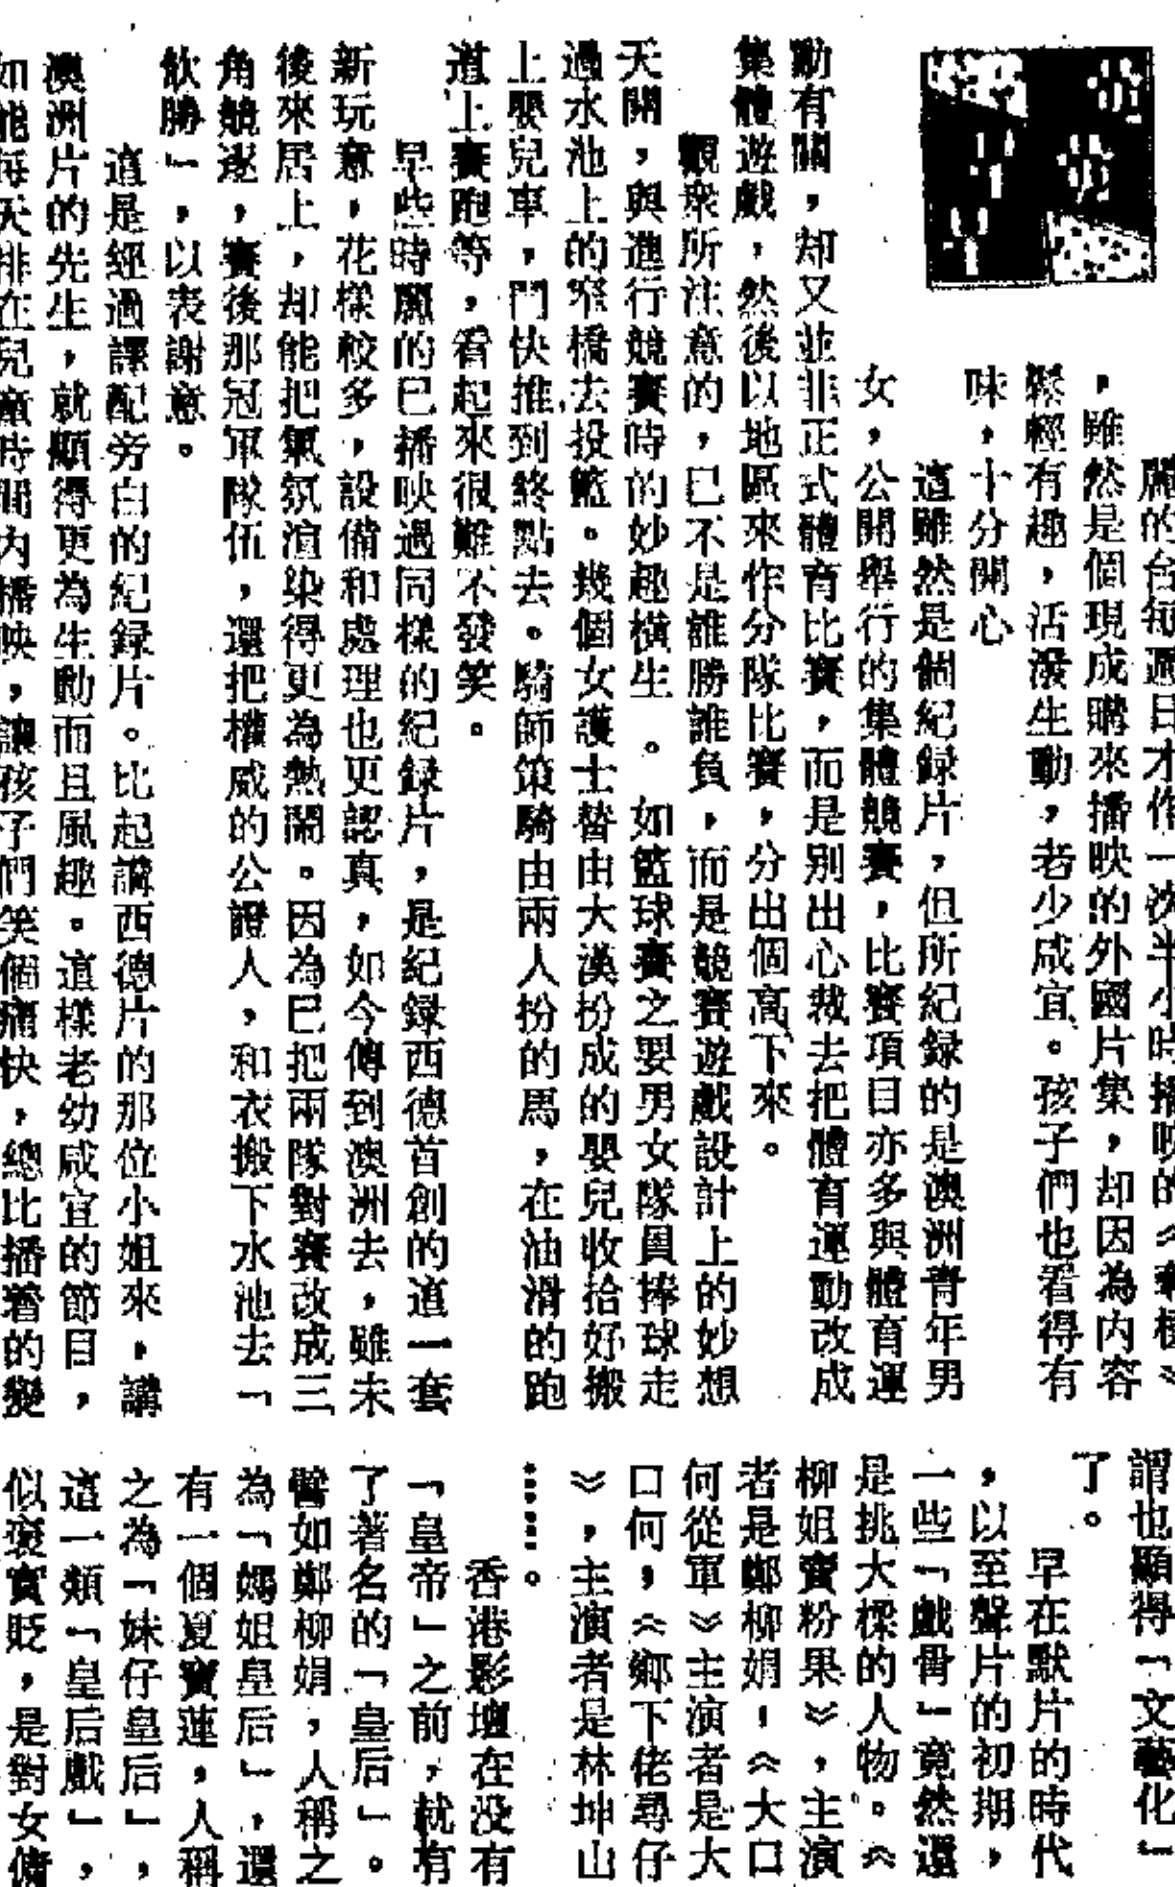 麗的台每週日才作一次半小時播映的《奪標》
，雖然是個現成購來播映的外國片集，却因為內容
輕有趣，活潑生動，老少咸宜。孩子們也看得有
味，十分開心
這雖然是個紀録片，但所紀録的是澳洲青年男
女，公開舉行的集體競賽，比賽項目亦多與體育運
動有關，却又並非正式體育比賽，而是別出心裁去把體育運動改成
集體遊戲，然後以地區來作分隊比賽，分出個高下來。
觀衆所注意的，已不是誰勝誰負，而是競賽遊戲設計上的妙想
天開，與進行競賽時的妙趣橫生。如籃球賽之要男女隊員捧球走
過水池上的窄橋去投籃。幾個女護士替由大漢扮成的嬰兒收拾好搬
上嬰兒車，鬥快推到終點去。騎師策騎由兩人扮的馬，在油滑的跑
道上賽跑等，看起來很難不發笑。
早些時麗的已播映過同樣的紀録片，是紀録西德首創的這一套
新玩意，花樣較多，設備和處理也更認真，如今傳到澳洲去，雖未
後來居上，却能把氣氛渲染得更為熱鬧。因為已把兩隊對賽改成三
角競逐，賽後那冠軍隊伍，還把權威的公證人，和衣搬下水池去「
飲勝」，以表謝意。
這是經過譯配旁白的紀録片。比起講西德片的那位小姐來，講
澳洲片的先生，就顯得更為生動而且風趣。這樣老幼咸宜的節目，
如能每天排在兒童時間內播映，讓孩子們笑個痛快，總比播着的變
謂也顯得「文藝化」
了。
早在默片的時代
，以至聲片的初期，
一些「戲骨」竟然還
是挑大樑的人物。《
柳姐賣粉果》，主演
者是鄭柳娟，《大口
何從軍》主演者是大
口何，《鄉下佬尋仔
》，主演者是林坤山
……。
香港影壇在没有
「皇帝」之前，就有
了著名的「皇后」。
譬如鄭柳娟，人稱之
為「媽姐皇后」，還
有一個夏寶蓮，人稱
之為「妹仔皇后」，
這一類「皇后戲」，
似褒實貶，是對女傭